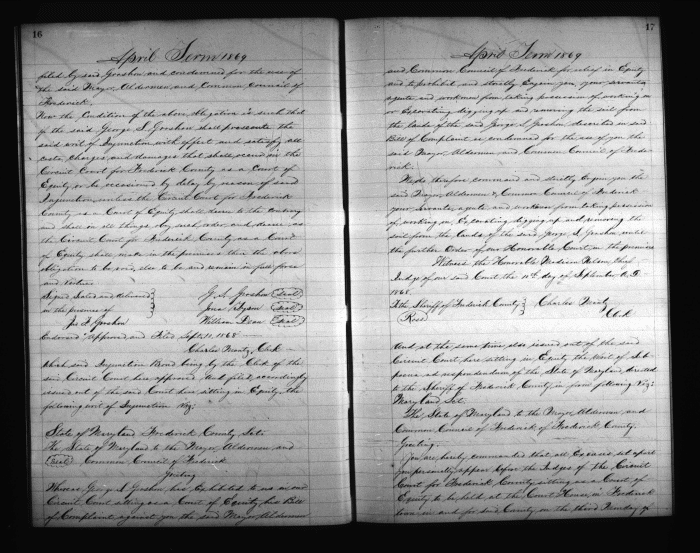 16
April Term 1869
filed by said Groshon and condemned for the use of
the said Mayor, Aldermen, and Common Council of
Frederick.
Now the Condition of the above Obligation is such that
if the said George S. Groshon shall prosecute the
said writ of Injunction with effect and satisfy all
costs, Charges, and damages that shall occur in the
Circuit Court for Frederick County as a Court of
Equity or be occasioned by delay by reason of said
Injunction, unless the Circuit Court for Frederick
County as a Court of Equity shall decree to the contrary
and shall in all things obey such order and decree as
the Circuit Court for Frederick County as a Court
of Equity shall make in the premises then the above
obligation to be void, else to be and remain in full force
and virtue
Signed Sealed and delivered
in the presence of
G. S. Groshon (Seal)
(Seal)
William Dean (Seal)
Groshon
Endorsed "Approved and Filed Sept. 11, 1868"
Charles Mantz, Clerk
Which said Injunction Bond being by the Clerk of the
said Circuit Court here approved, And filed, accordingly
issued out of the said Court here sitting in Equity, the
following writ of Injunction Viz:
State of Maryland Frederick County Sct.
The State of Maryland to the Mayor Aldermen and
(Seal) Common Council of Frederick
Greeting
Whereas George S. Groshon, has Exhibited to us in our
Circuit Court sitting as a Court of Equity, his Bill
of Complaint against you the said Mayor, Aldermen
17
April Term 1869
and Common Council of Frederick for relief in Equity
and to prohibit, and strictly Enjoin you, your servants
agents and workmen from taking possession of working in
or Excavating, digging up and removing the soil from
the lands of the said George S. Groshon, described in said
Bill of Complaint as condemned for the use of you the
said Mayor, Aldermen, and Common Council of Frede-
rick.
We do therefore command and strictly Enjoin you the
said Mayor, Aldermen & Common Council of Frederick
your servants, agents, and workmen from taking possession
of working in, Excavating, digging up and removing the
soil from the lands of the said George S. Groshon until
the further Order of our Honorable Court in the premises
Witness the Honorable Madison Nelson, Chief
Judge of our said Court the 11th day of September A.D.
1868.
To the Sheriff of Frederick County
Charles Mantz
Clk
And at the same time also issued out of the said
Circuit Court here sitting in Equity the Writ of Sub-
poena ad respondendum of the State of Maryland, directed
to the Sheriff of Frederick County in form following Viz:
Maryland Sct.
The State of Maryland to the Mayor Aldermen and
Common Council of Frederick of Frederick County.
Greeting.
You are hereby commanded that all Excuses set apart
you personally appear before the Judges of the Circuit
Court for Frederick County, sitting as a Court of
Equity to be held at the Court House, in Frederick
town in and for said County on the third Monday of